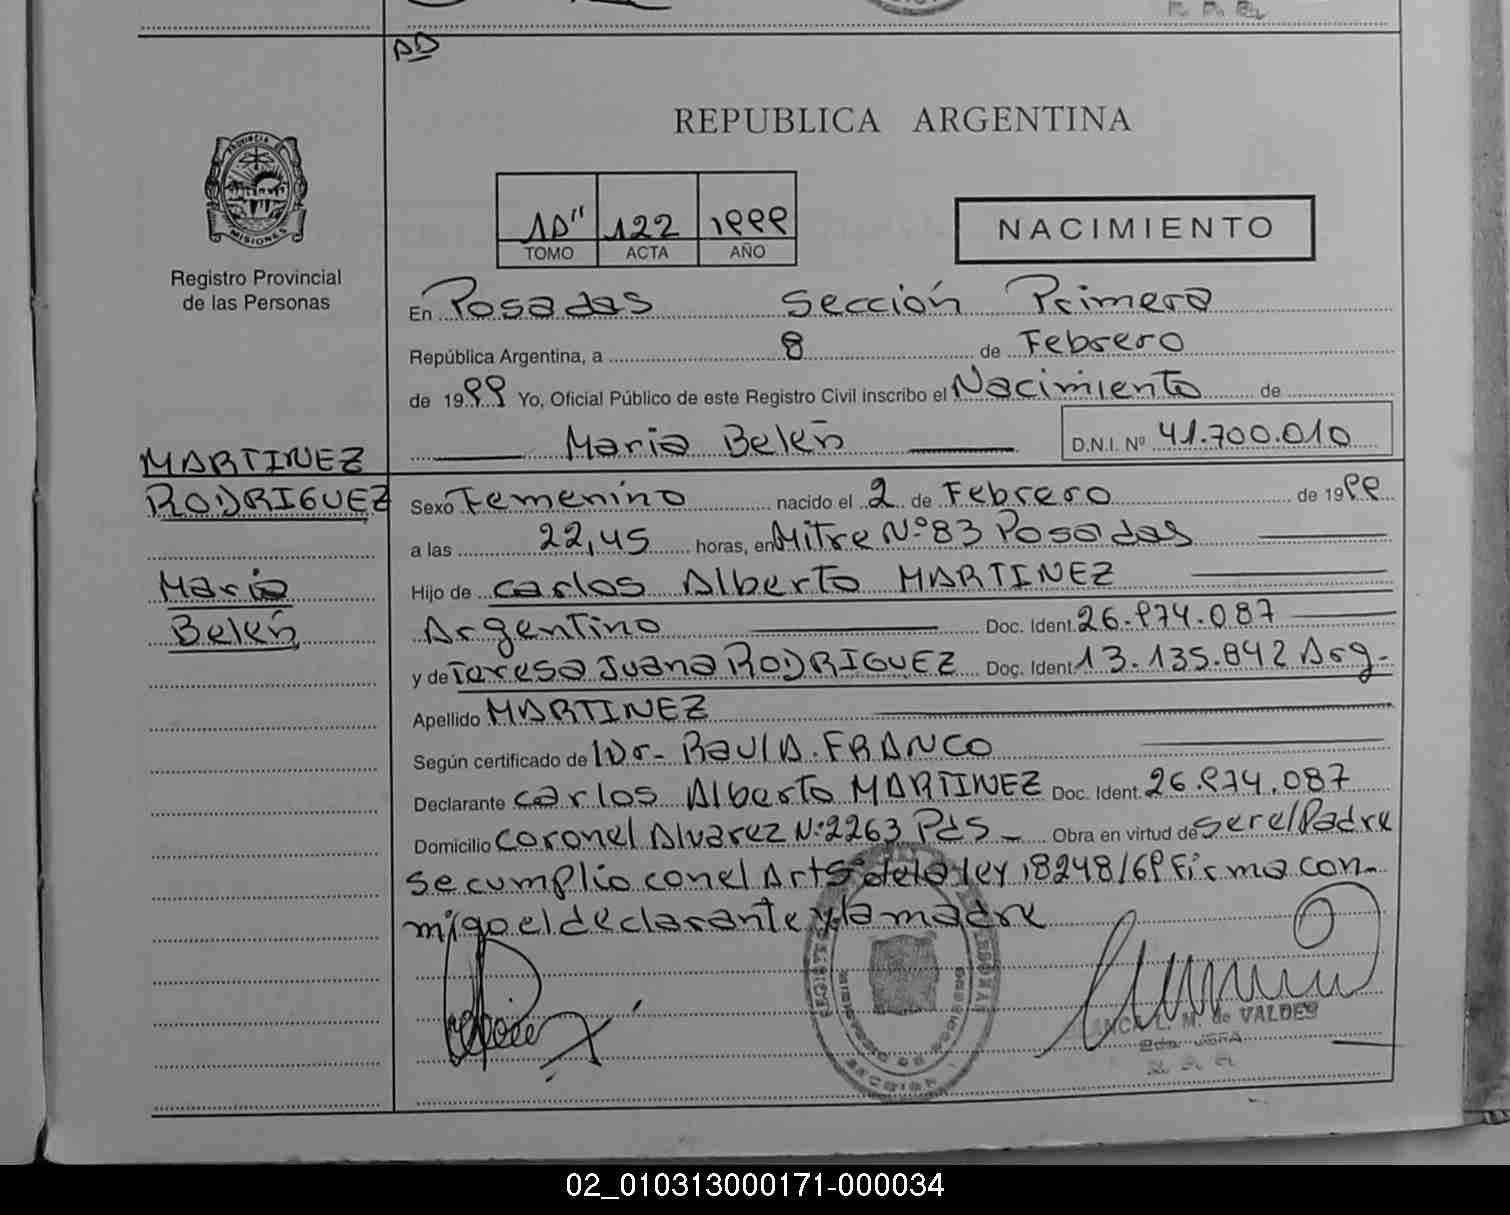 AD
REPUBLICA ARGENTINA
PROVINCIA DE
MISIONES
Registro Provincial
de las Personas
1D" 122 1999
TOMO ACTA AÑO
NACIMIENTO
En Posadas Sección Primera
República Argentina, a 8 de Febrero
de 1999 Yo, Oficial Público de este Registro Civil inscribo el Nacimiento de
Maria Belén D.N.I. Nº 41.700.010
MARTINEZ
RODRIGUEZ
Maria
Belén
Sexo Femenino nacido el 2 de Febrero de 1999
a las 22,45 horas, en Mitre Nº 83 Posadas
Hijo de Carlos Alberto MARTINEZ
Argentino Doc. Ident. 26.974.087
y de Teresa Juana RODRIGUEZ Doc. Ident. 13.135.842 Arg.
Apellido MARTINEZ
Según certificado de Dr. RAUL A. FRANCO
Declarante Carlos Alberto MARTINEZ Doc. Ident. 26.974.087
Domicilio Coronel Alvarez Nº 2263 Pds Obra en virtud de ser el Padre
se cumplio con el Art 5º de la ley 18248/69 Firma con-
migo el declarante y la madre
L. M. de VALDES
JEFA
02_010313000171-000034